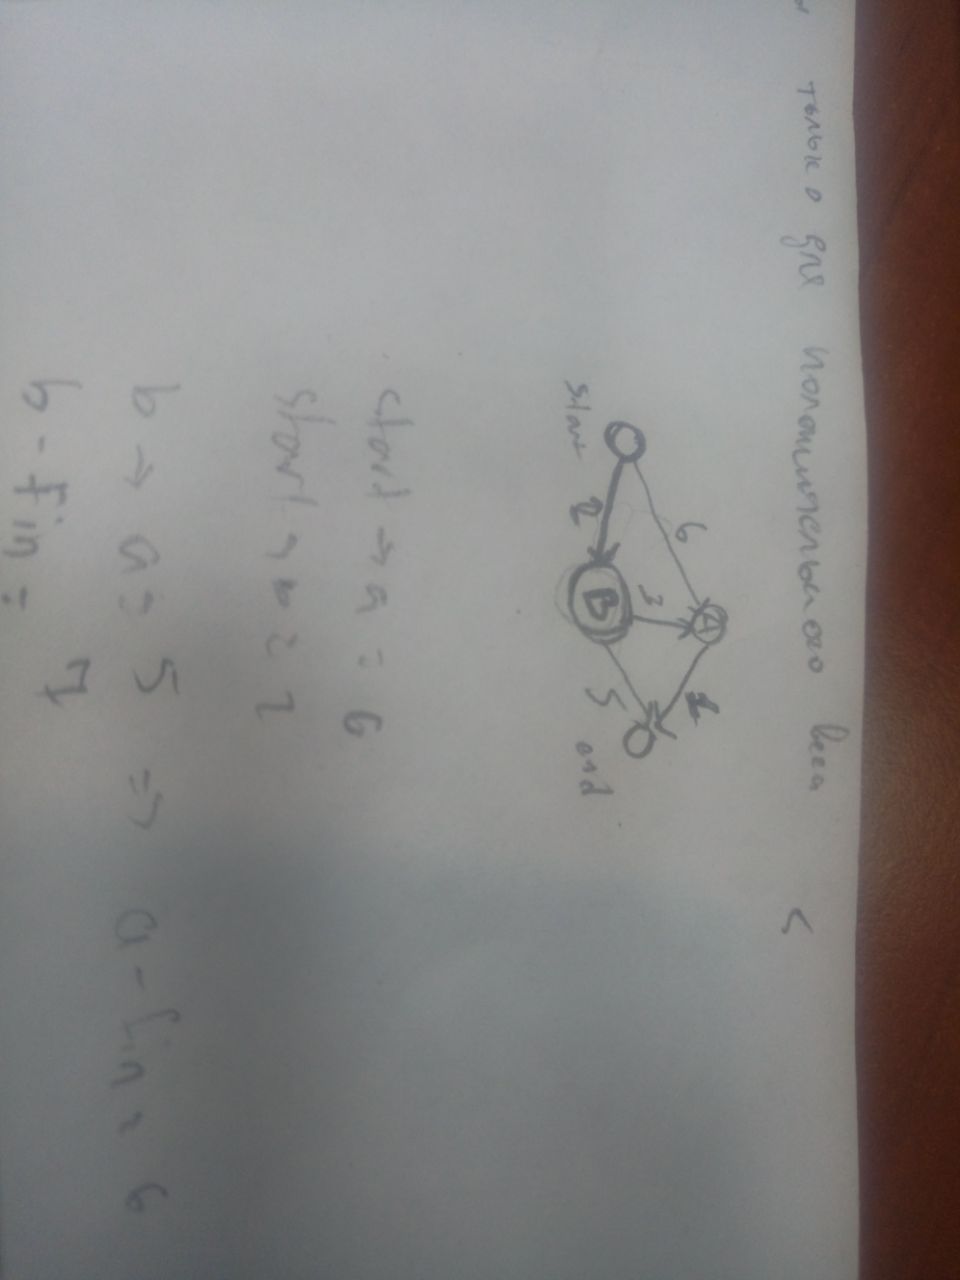 только для положительного веса
6
A
2
3
1
start
B
5
end
start → a = 6
start → b = 2
b → a = 5 => a - fin = 6
b - fin = 7